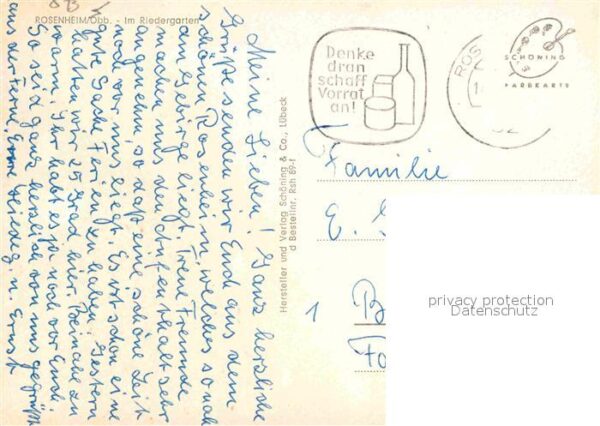 ROSENHEIM/Obb. - Im Riedergarten
Meine Lieben! Ganz herzliche
Grüße senden wir Euch aus dem
schönen Rosenheim, welches so nah
am Gebirge liegt. Freunde
machen uns den Aufenthalt sehr
angenehm, so daß eine schöne Zeit
noch vor uns liegt. Es ist schon eine
gute Sache Ferien zu haben. Gestern
hatten wir 25 Grad hier. Beinahe zu
warm. Ihr habt es ja noch vor Euch.
So seid ganz herzlich von uns gegrüßt
aus der Ferne, Eure u. Ernst
Hersteller und Verlag Schöning & Co., Lübeck
d Bestellnr. Rsh 89-f
Denke
dran
schaff
Vorrat
an!
ROS
SCHÖNING
FARBKARTE
Familie
E.
1
privacy protection
Datenschutz